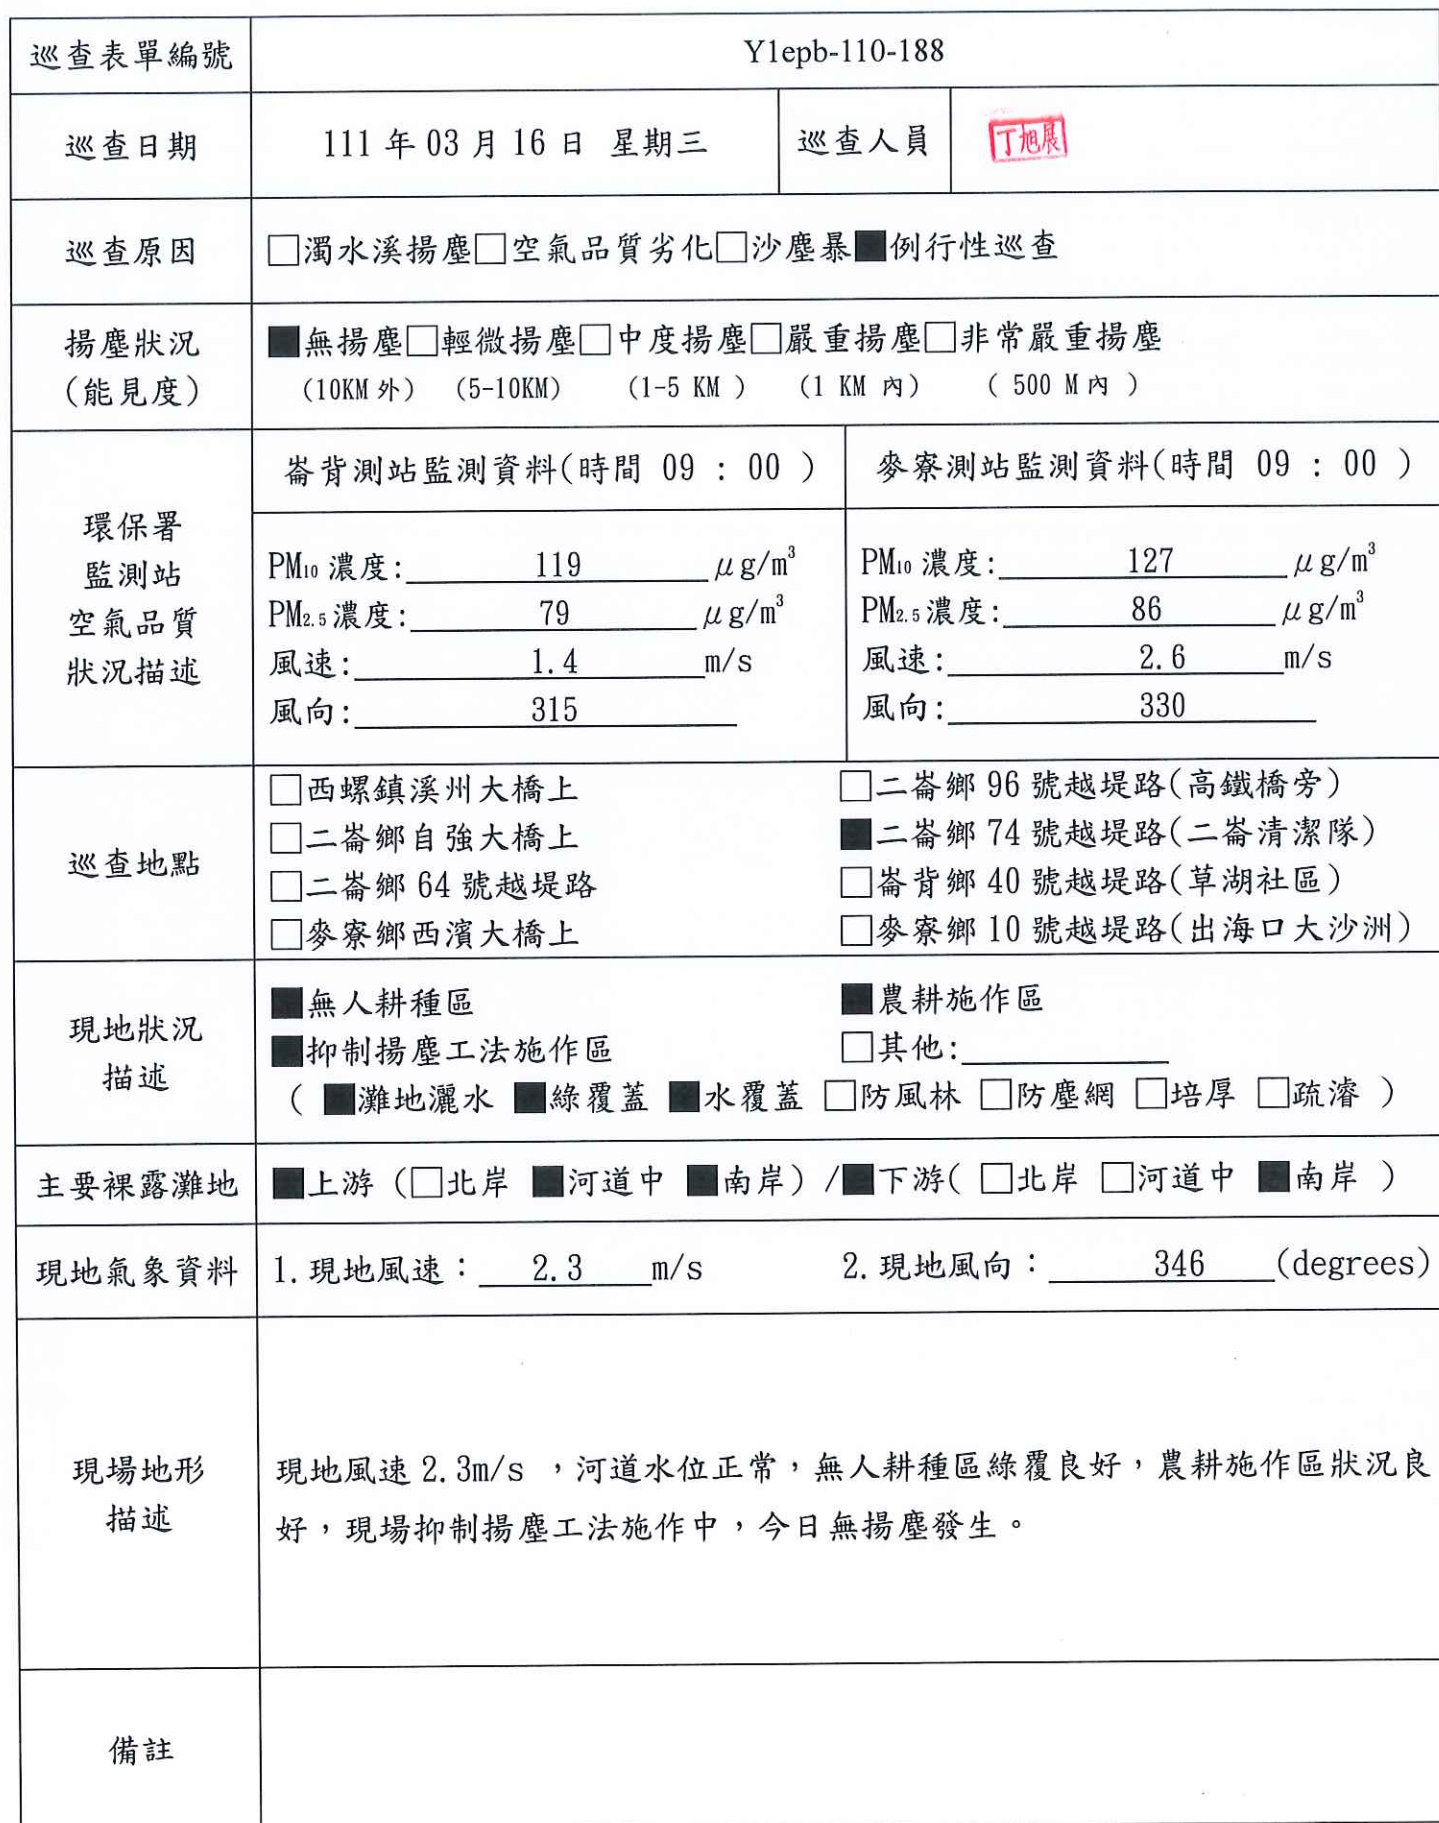 巡查表單編號 Y1epb-110-188
巡查日期 111年03月16日 星期三 巡查人員 丁旭展
巡查原因 □濁水溪揚塵□空氣品質劣化□沙塵暴■例行性巡查
揚塵狀況 ■無揚塵□輕微揚塵□中度揚塵□嚴重揚塵□非常嚴重揚塵
(能見度) (10KM外) (5-10KM) (1-5 KM ) (1 KM 內) ( 500 M內 )
環保署
監測站
空氣品質
狀況描述
崙背測站監測資料(時間 09 : 00 )
PM10濃度: 119 μg/m³
PM2.5濃度: 79 μg/m³
風速: 1.4 m/s
風向: 315
麥寮測站監測資料(時間 09 : 00 )
PM10濃度: 127 μg/m³
PM2.5濃度: 86 μg/m³
風速: 2.6 m/s
風向: 330
巡查地點
□西螺鎮溪州大橋上 □二崙鄉96號越堤路(高鐵橋旁)
□二崙鄉自強大橋上 ■二崙鄉74號越堤路(二崙清潔隊)
□二崙鄉64號越堤路 □崙背鄉40號越堤路(草湖社區)
□麥寮鄉西濱大橋上 □麥寮鄉10號越堤路(出海口大沙洲)
現地狀況
描述
■無人耕種區 ■農耕施作區
■抑制揚塵工法施作區 □其他:
( ■灘地灑水 ■綠覆蓋 ■水覆蓋 □防風林 □防塵網 □培厚 □疏濬 )
主要裸露灘地 ■上游 (□北岸 ■河道中 ■南岸) /■下游( □北岸 □河道中 ■南岸 )
現地氣象資料 1.現地風速： 2.3 m/s 2.現地風向： 346 (degrees)
現場地形
描述
現地風速2.3m/s ，河道水位正常，無人耕種區綠覆良好，農耕施作區狀況良
好，現場抑制揚塵工法施作中，今日無揚塵發生。
備註